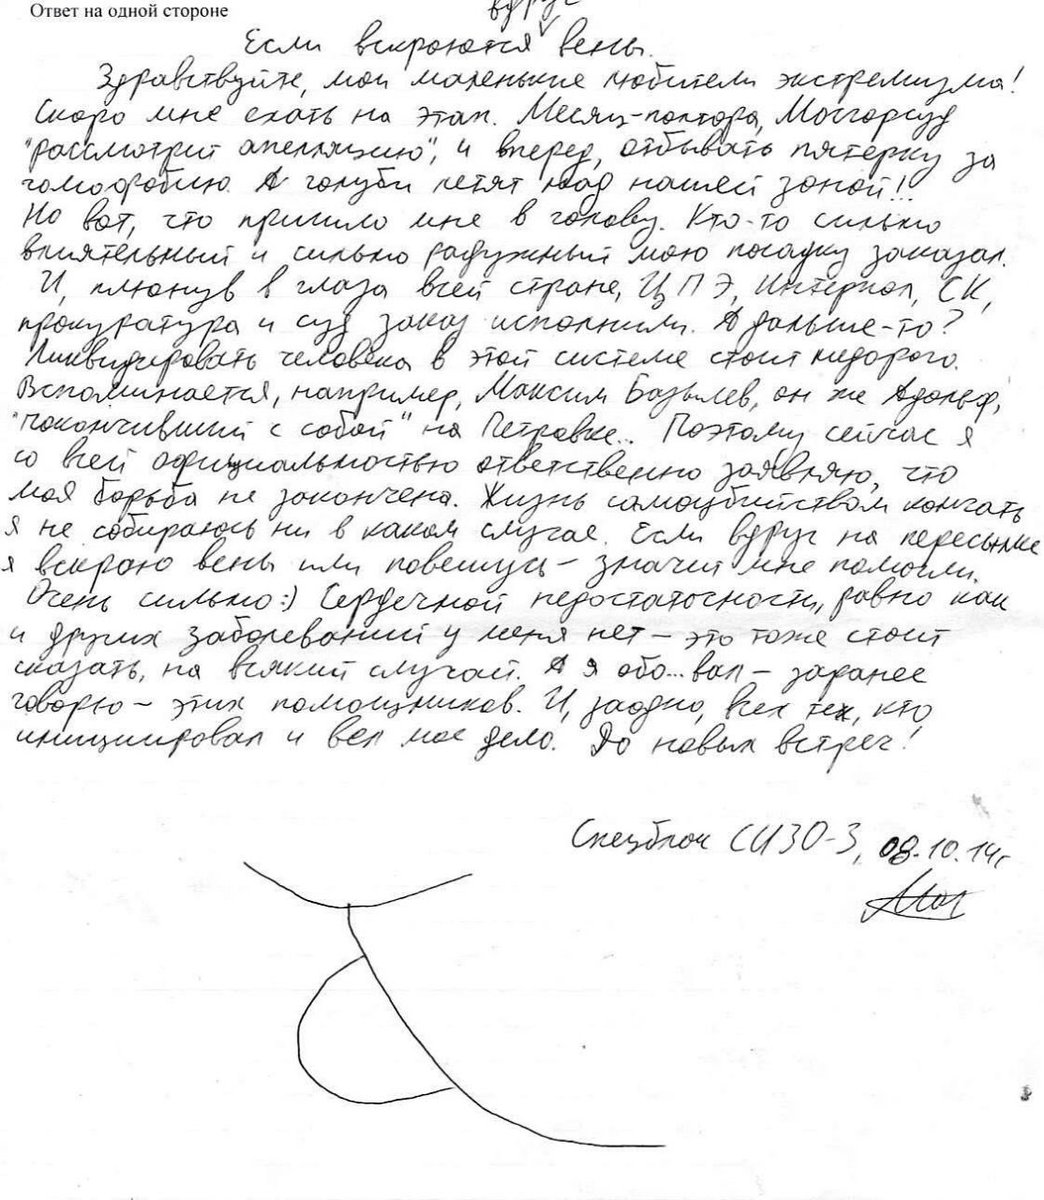 Ответ на одной стороне
вдруг
Если вскроются вены.
Здравствуйте, мои маленькие любители экстремизма!
Скоро мне ехать на этап. Месяц-полтора, Мосгорсуд
"рассмотрит апелляцию", и вперед, отбывать пятерку за
гомофобию. А голуби летят над нашей зоной!..
Но вот, что пришло мне в голову. Кто-то сильно
влиятельный и сильно радужный мою посадку заказал.
И, плюнув в глаза всей стране, ЦПЭ, Интерпол, СК,
прокуратура и суд заказ исполнили. А дальше-то?
Ликвидировать человека в этой системе стоит недорого.
Вспоминается, например, Максим Базылев, он же Адольф,
"покончивший с собой" на Петровке... Поэтому сейчас я
со всей официальностью ответственно заявляю, что
моя борьба не закончена. Жизнь самоубийством кончать
я не собираюсь ни в каком случае. Если вдруг на пересылке
я вскрою вены или повешусь – значит мне помогли.
Очень сильно :) Сердечной недостаточности, равно как
и других заболеваний у меня нет – это тоже стоит
сказать, на всякий случай. А я обо...вал – заранее
говорю – этих помощников. И, заодно, всех тех, кто
инициировал и вел мое дело. До новых встреч!
Спецблок СИЗО-3, 08.10.14г